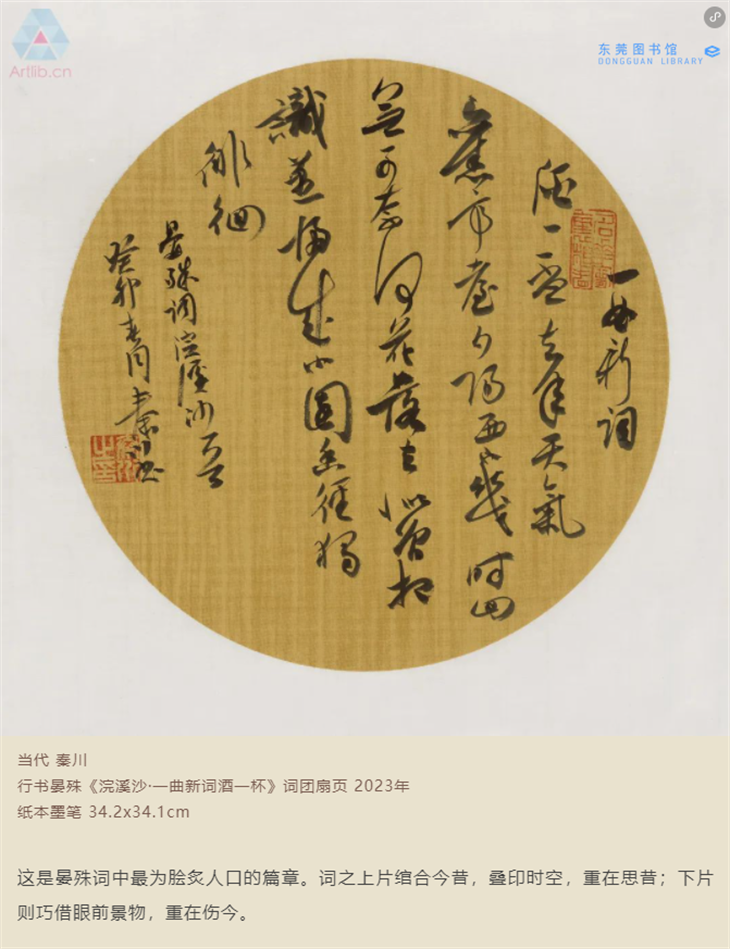 Artlib.cn
东莞图书馆
DONGGUAN LIBRARY
一曲新詞
酒一盃去年天氣
舊亭臺夕陽西下幾时回
無可奈何花落去似曾相
識燕歸來小園香徑獨
徘徊
晏殊词浣溪沙一首
癸卯春月秦川書
当代 秦川
行书晏殊《浣溪沙·一曲新词酒一杯》词团扇页 2023年
纸本墨笔 34.2x34.1cm
这是晏殊词中最为脍炙人口的篇章。词之上片绾合今昔，叠印时空，重在思昔；下片
则巧借眼前景物，重在伤今。